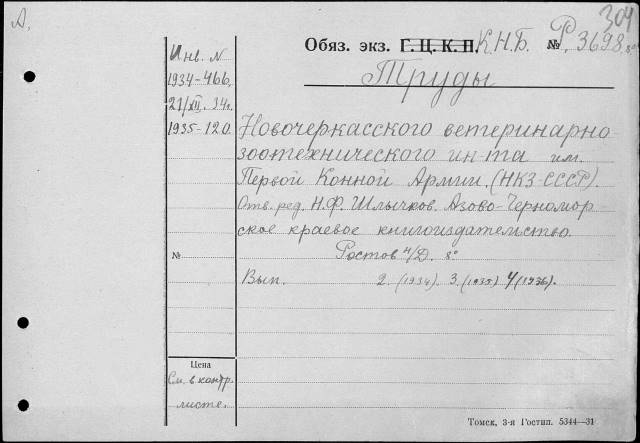 А.
304
Обяз. экз. Г. Ц. К. П. К.Н.Б. № Р 3698 8°
Труды
Инв. N
1934-466.
21/XII. 34г.
1935-120.
Новочеркасского ветеринарно-
зоотехнического ин-та им.
Первой Конной Армии. (НКЗ-СССР).
Отв. ред. Н.Ф. Шлычков. Азово-Черномор-
ское краевое книгоиздательство.
Ростов н/Д. 8°
№
Вып. 2. (1934). 3. (1935) 4 (1936).
Цена
См. в контр.
листе.
Томск, 3-я Гостип. 5344—31